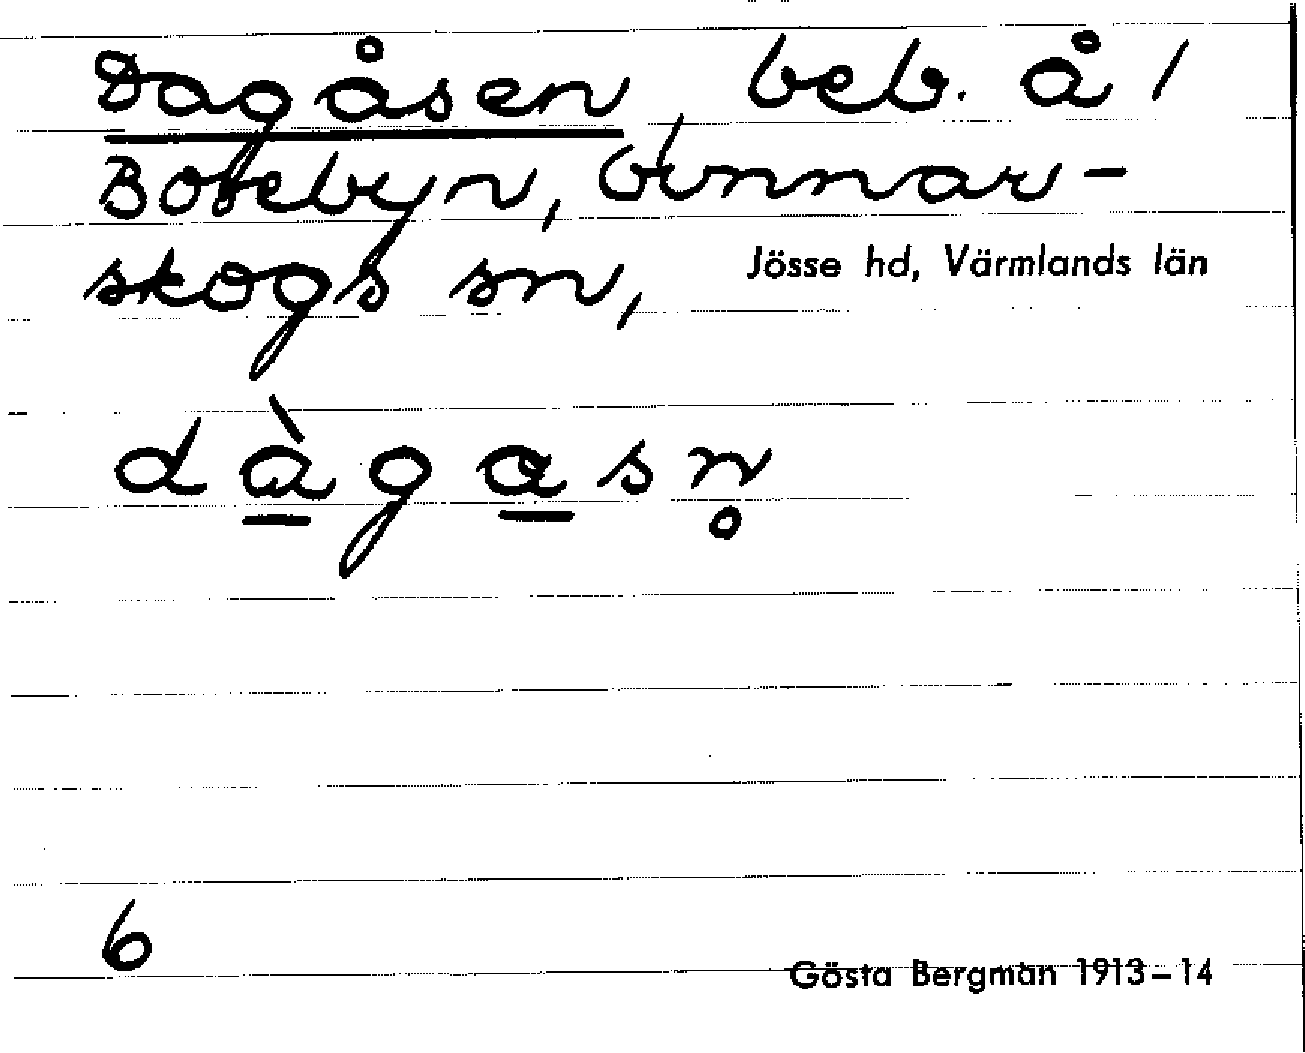 Dagåsen beb. å 1
Bosebyn, Gunnar-
skogs sn, Jösse hd, Värmlands län
dà̲ga̲sn̥
6
Gösta Bergman 1913–14